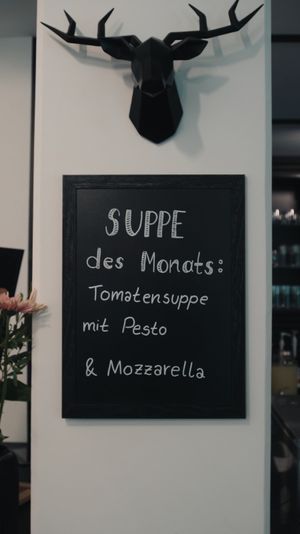 SUPPE
des Monats:
Tomatensuppe
mit Pesto
& Mozzarella